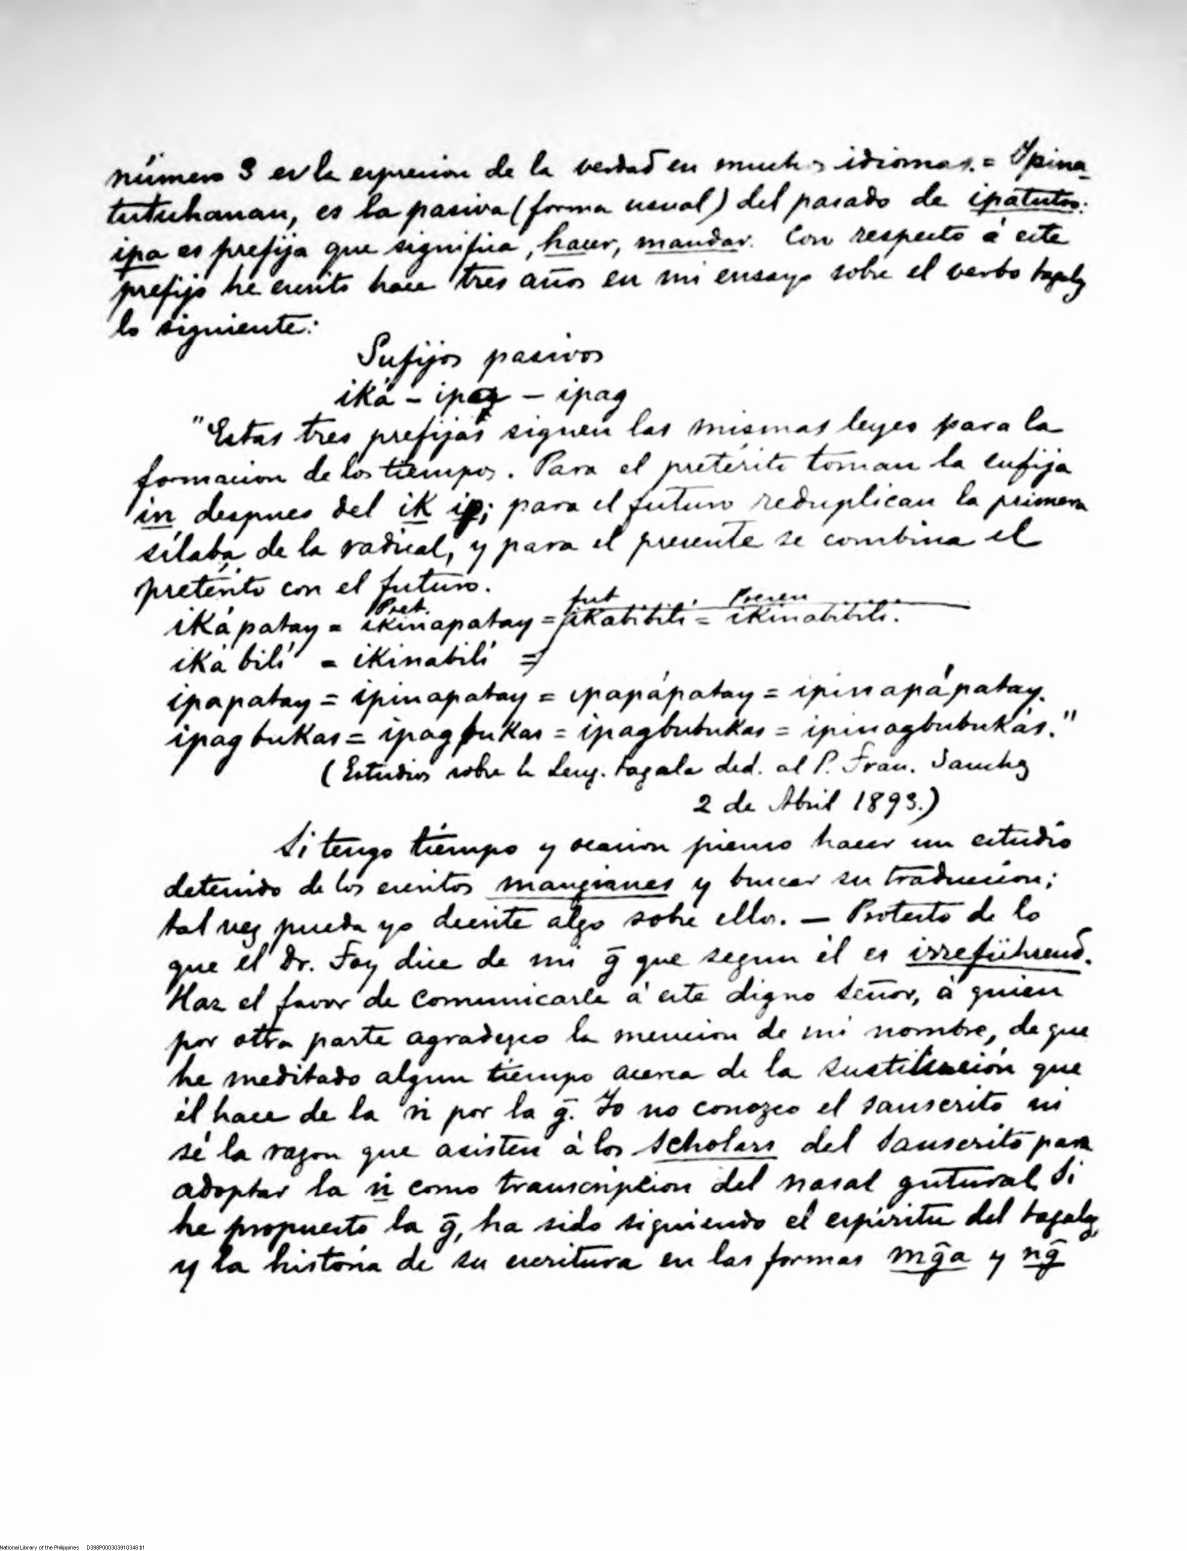 número 3 es la expresion de la verdad en muchos idiomas. = Ipina-
tutuhanan, es la pasiva (forma usual) del pasado de ipatutoo:
ipa es prefija que significa, hacer, mandar. Con respecto á este
prefijo he escrito hace tres años en mi ensayo sobre el verbo tagalg
lo siguiente:
Sufijos pasivos
iká - ipa - ipag
"Estas tres prefijas siguen las mismas leyes para la
formacion de los tiempos. Para el pretérito toman la sufija
in despues del ik ip; para el futuro reduplican la primera
sílaba de la radical, y para el presente se combina el
pretérito con el futuro.
Pret. fut Presen
ikápatay = ikinapatay = ikabibili = ikinabibili.
ikábili = ikinabili =
ipapatay = ipinapatay = ipapápatay = ipinapápatay.
ipagbukas = ipagbukas = ipagbubukas = ipinagbubukás."
(Estudios sobre la Leng. tagala ded. al P. Fran. Sanchez
2 de Abril 1893.)
Si tengo tiempo y ocasion pienso hacer un estudio
detenido de los escritos mangianes y buscar su traduccion;
tal vez pueda yo decirte algo sobre ellos. — Protesto de lo
que el Dr. Foy dice de mi g̃ que segun él es irreführend.
Haz el favor de comunicarle á este digno Señor, á quien
por otra parte agradezco la mencion de mi nombre, de que
he meditado algun tiempo acerca de la sustitucion que
él hace de la ṅ por la g̃. Yo no conozco el sanscrito ni
sé la razon que asisten á los Scholars del Sanscrito para
adoptar la ṅ como transcripcion del nasal gutural. Si
he propuesto la g̃, ha sido siguiendo el espíritu del tagalg,
y la historia de su escritura en las formas mg̃a y ng̃
National Library of the Philippines